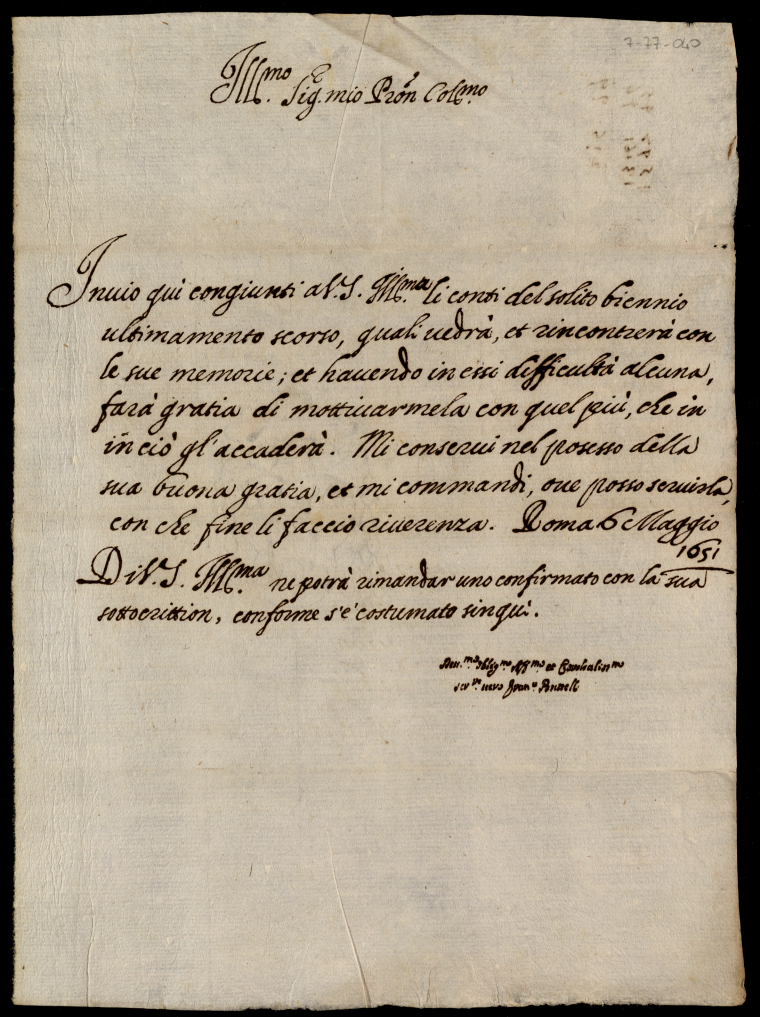 7-77-040
Ill.mo Sig.e mio Pròn Col.mo
Inuio qui congiunti a V.S. Ill.ma li conti del solito biennio
ultimamento scorso, quali uedrà, et rincontrerà con
le sue memorie; et hauendo in essi difficultà alcuna,
farà gratia di mottiuarmela con quel più, che in
in ciò gl'accaderà. Mi conserui nel posesso della
sua buona gratia, et mi commandi, oue posso seruirla,
con che fine li faccio riuerenza. Roma 6 Maggio
1651
Di V.S. Ill.ma ne potrà rimandar uno confirmato con la sua
sottocrittion, conforme s'è costumato sinqui.
Deu.mo Oblig.mo Aff.mo et Cordialiss.mo
ser.re uero Fran.o